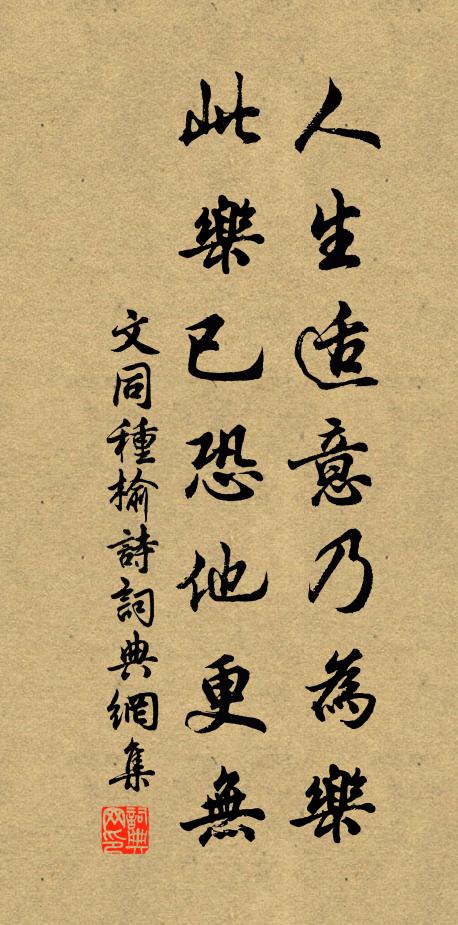 人生適意乃為樂
此樂已恐他更無
文同種榆詩詞典網集
詞典網印